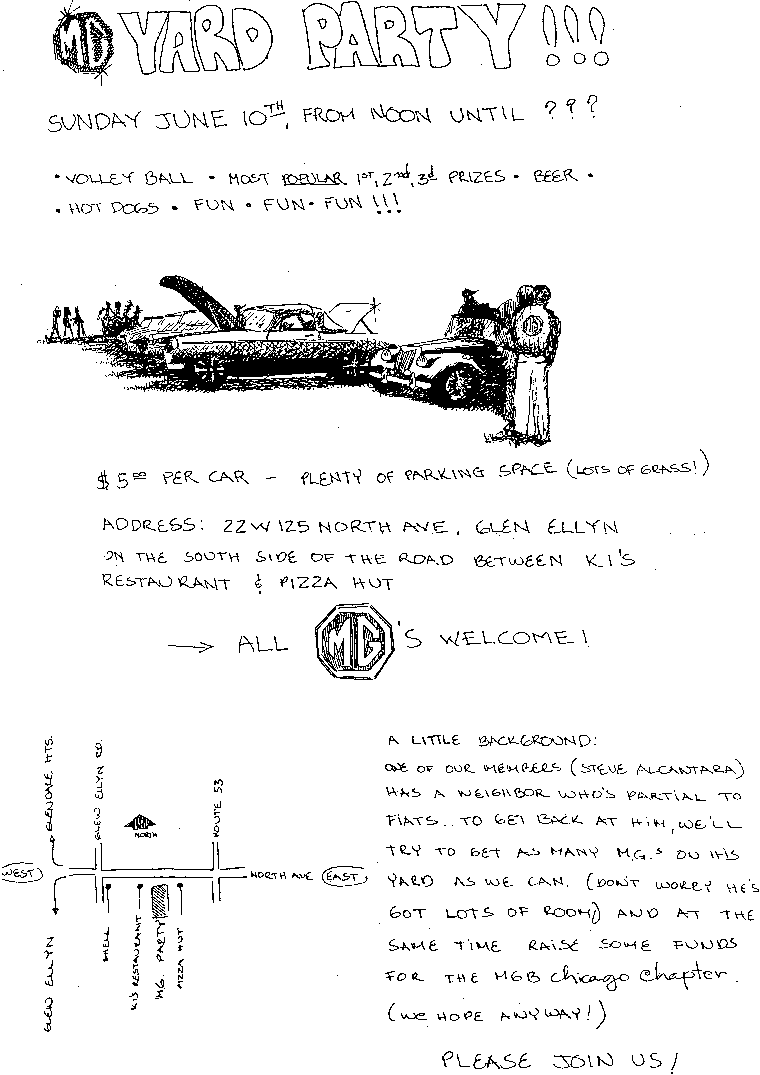 MG YARD PARTY!!!
SUNDAY JUNE 10TH, FROM NOON UNTIL ???
• VOLLEY BALL • MOST POPULAR 1ST, 2nd, 3d PRIZES • BEER •
• HOT DOGS • FUN • FUN • FUN !!!
$5 00 PER CAR – PLENTY OF PARKING SPACE (LOTS OF GRASS!)
ADDRESS: 22W125 NORTH AVE, GLEN ELLYN
ON THE SOUTH SIDE OF THE ROAD BETWEEN K.I'S
RESTAURANT & PIZZA HUT
→ ALL MG'S WELCOME!
GLENDALE HTS.
GLEN ELLYN RD.
ROUTE 53
NORTH
WEST
NORTH AVE EAST
GLEN ELLYN
SHELL
KI'S RESTAURANT
MG. PARTY
PIZZA HUT
A LITTLE BACKGROUND:
ONE OF OUR MEMBERS (STEVE ALCANTARA)
HAS A NEIGHBOR WHO'S PARTIAL TO
FIATS.. TO GET BACK AT HIM, WE'LL
TRY TO GET AS MANY M.G.'S ON HIS
YARD AS WE CAN. (DON'T WORRY HE'S
GOT LOTS OF ROOM) AND AT THE
SAME TIME RAISE SOME FUNDS
FOR THE MGB chicago chapter.
(WE HOPE ANYWAY!)
PLEASE JOIN US!